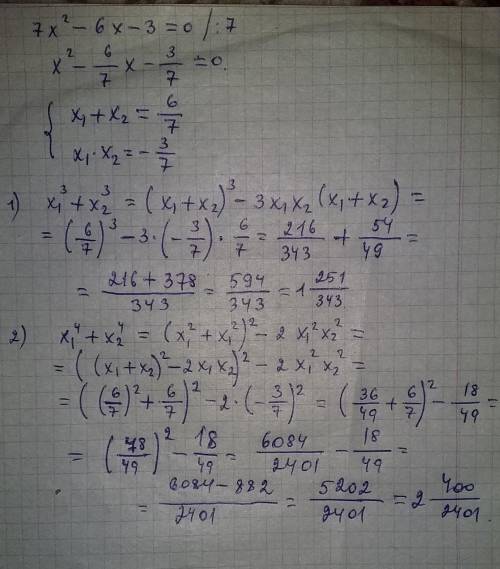 7x² − 6x − 3 = 0 /:7
x² − 6/7 x − 3/7 = 0.
{ x₁ + x₂ = 6/7
x₁ · x₂ = − 3/7
1) x₁³ + x₂³ = (x₁ + x₂)³ − 3x₁x₂(x₁ + x₂) =
= (6/7)³ − 3·(−3/7)·6/7 = 216/343 + 54/49 =
= (216 + 378)/343 = 594/343 = 1 251/343
2) x₁⁴ + x₂⁴ = (x₁² + x₁²)² − 2x₁²x₂² =
= ((x₁ + x₂)² − 2x₁x₂)² − 2x₁²x₂² =
= ((6/7)² + 6/7)² − 2·(−3/7)² = (36/49 + 6/7)² − 18/49 =
= (78/49)² − 18/49 = 6084/2401 − 18/49 =
= (6084 − 882)/2401 = 5202/2401 = 2 400/2401.